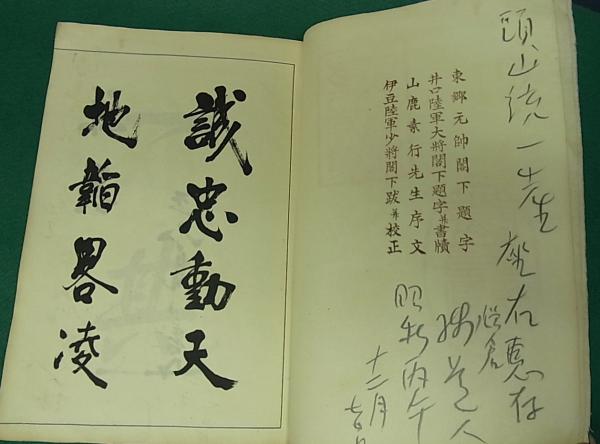 頭山統一先生座右恵存
昭和丙午
十二月
東鄉元帥閣下題字
井口陸軍大將閣下題字並書牘
山鹿素行先生序文
伊豆陸軍少將閣下跋並校正
誠忠動天
地韜畧凌